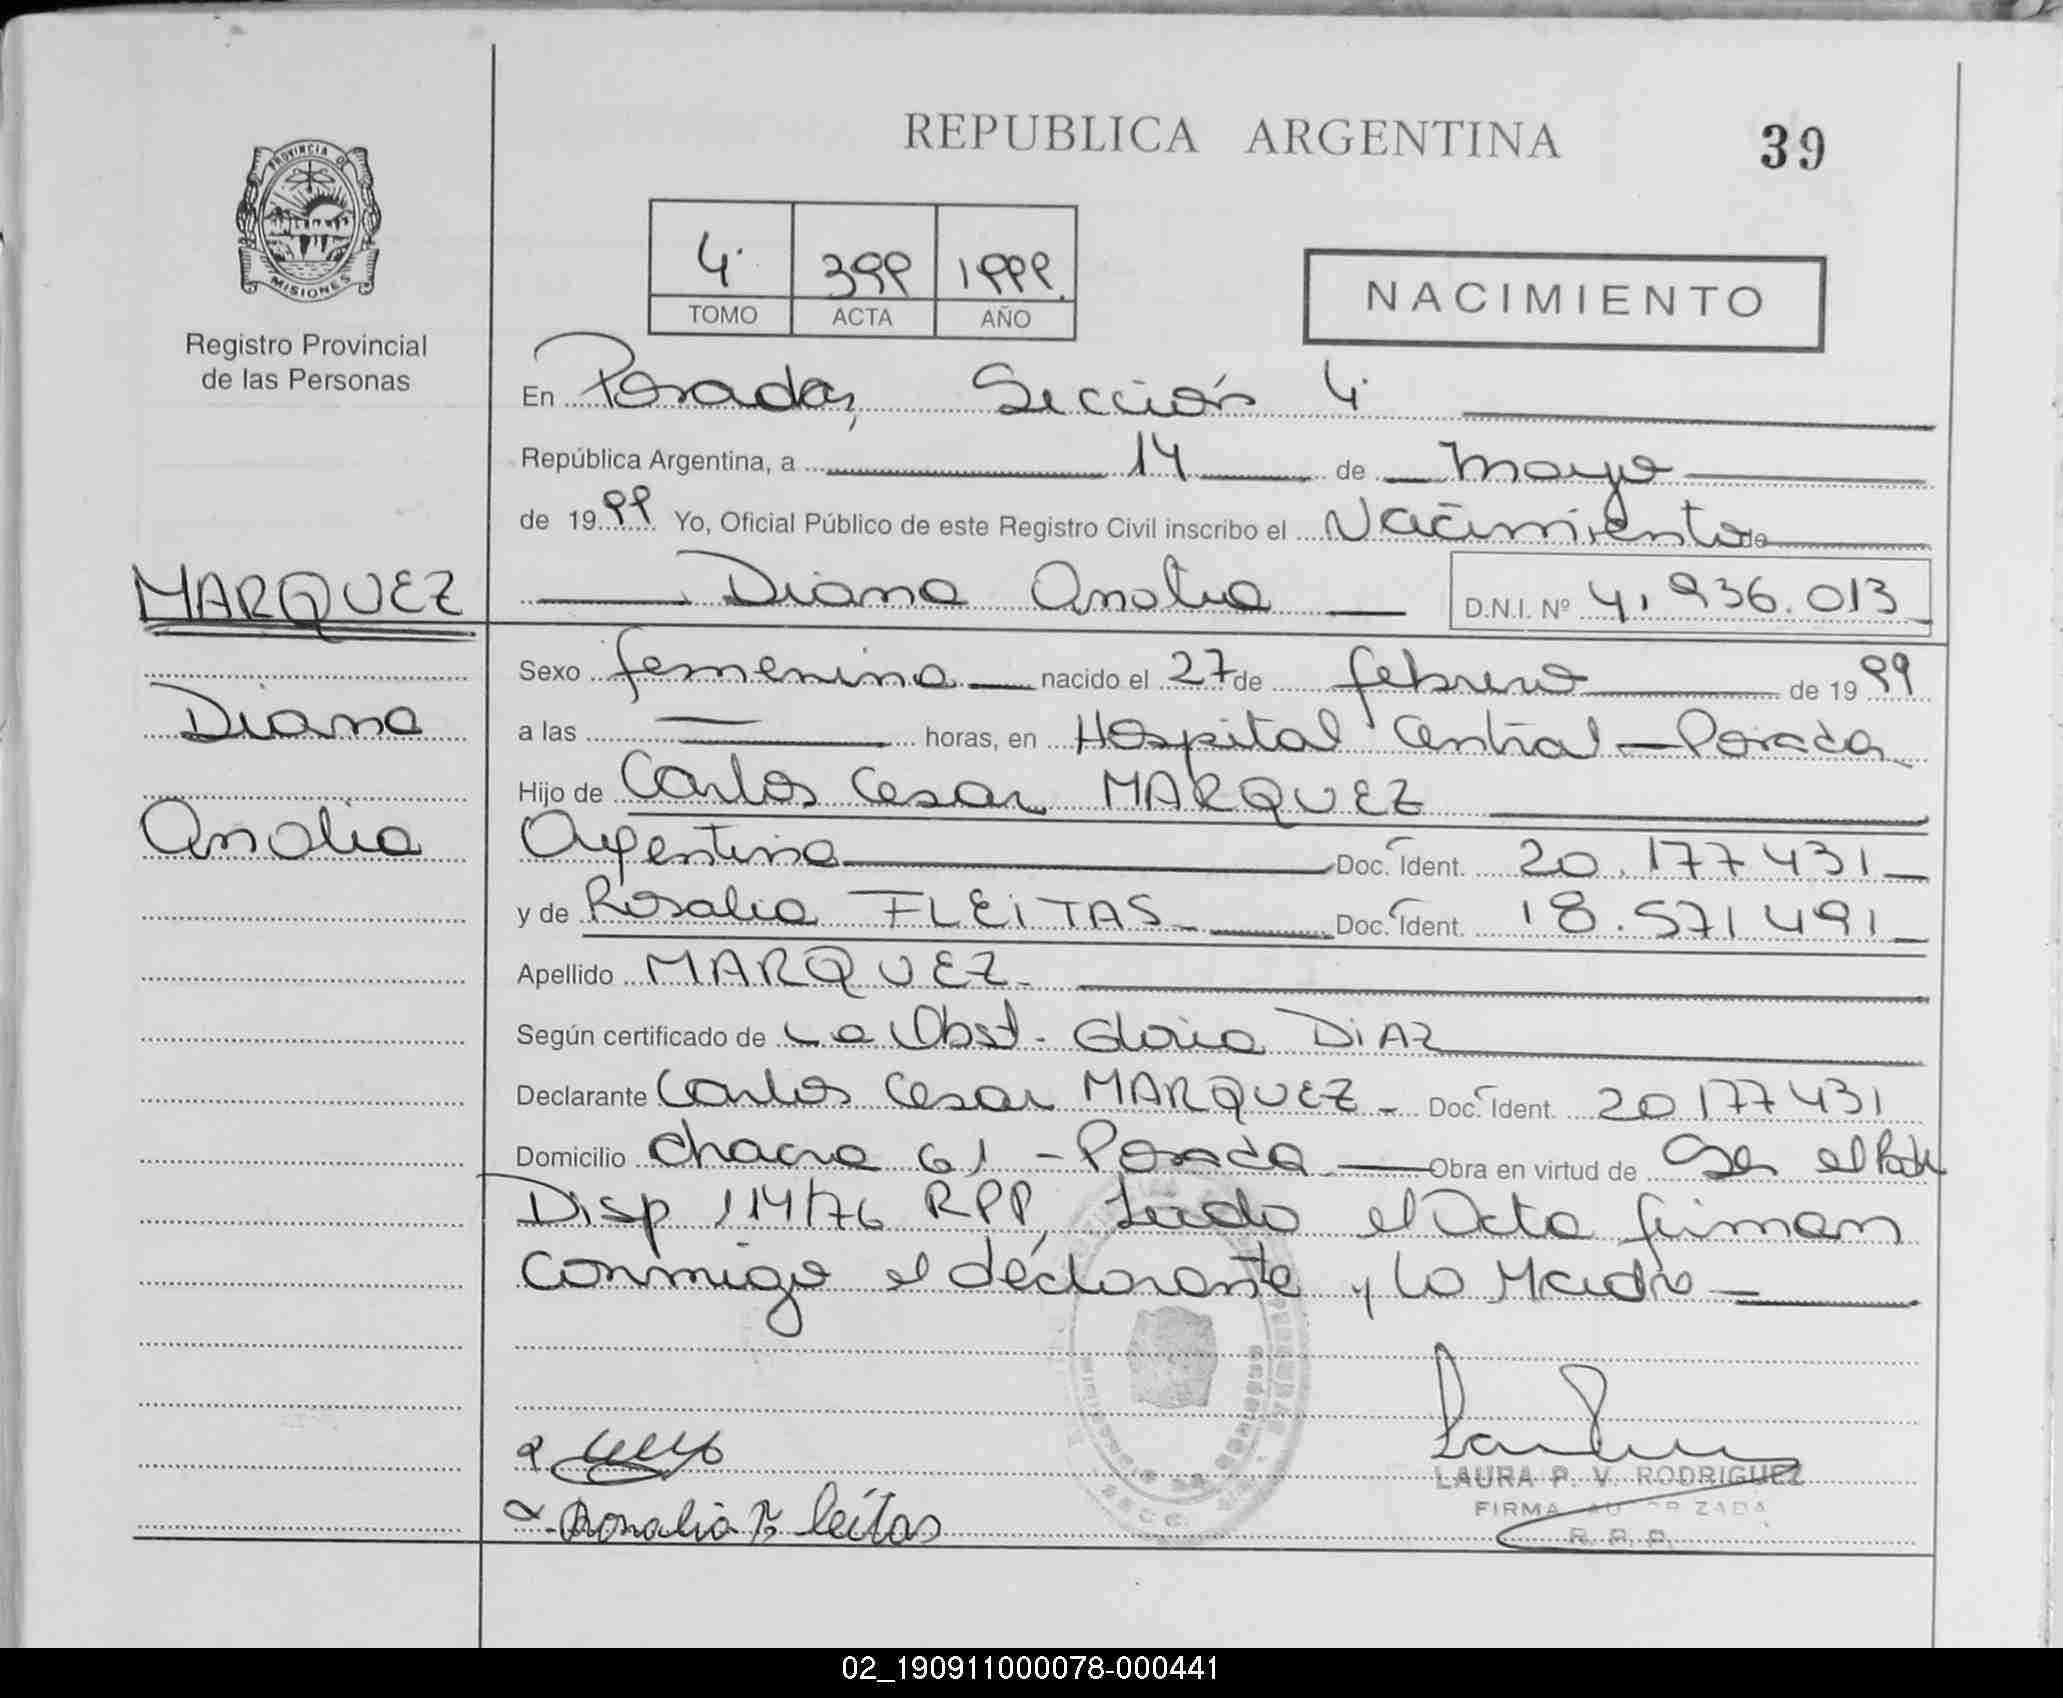 REPUBLICA ARGENTINA
39
PROVINCIA DE
MISIONES
Registro Provincial
de las Personas
4. 399 1999.
TOMO ACTA AÑO
NACIMIENTO
En Posadas, Sección 4.
República Argentina, a 14 de mayo
de 1999 Yo, Oficial Público de este Registro Civil inscribo el Nacimiento de
MARQUEZ
Diana Analia
D.N.I. Nº 41936.013
Sexo femenino nacido el 27 de febrero de 1999
Diana
a las horas, en Hospital Central - Posadas
Hijo de Carlos Cesar MARQUEZ
Analia
Argentina Doc. Ident. 20.177431
y de Rosalia FLEITAS Doc. Ident. 18.571491
Apellido MARQUEZ
Según certificado de La Obst. Gloria DIAZ
Declarante Carlos Cesar MARQUEZ - Doc. Ident. 20177431
Domicilio Chacra 61 - Posadas Obra en virtud de Ser el Padre
Disp 114/76 RPP, Leida el Acta firman
conmigo el declarante y la Madre
Rosalia F leitas
LAURA P. V. RODRIGUEZ
FIRMA AUTORIZADA
R. P. P.
02_190911000078-000441